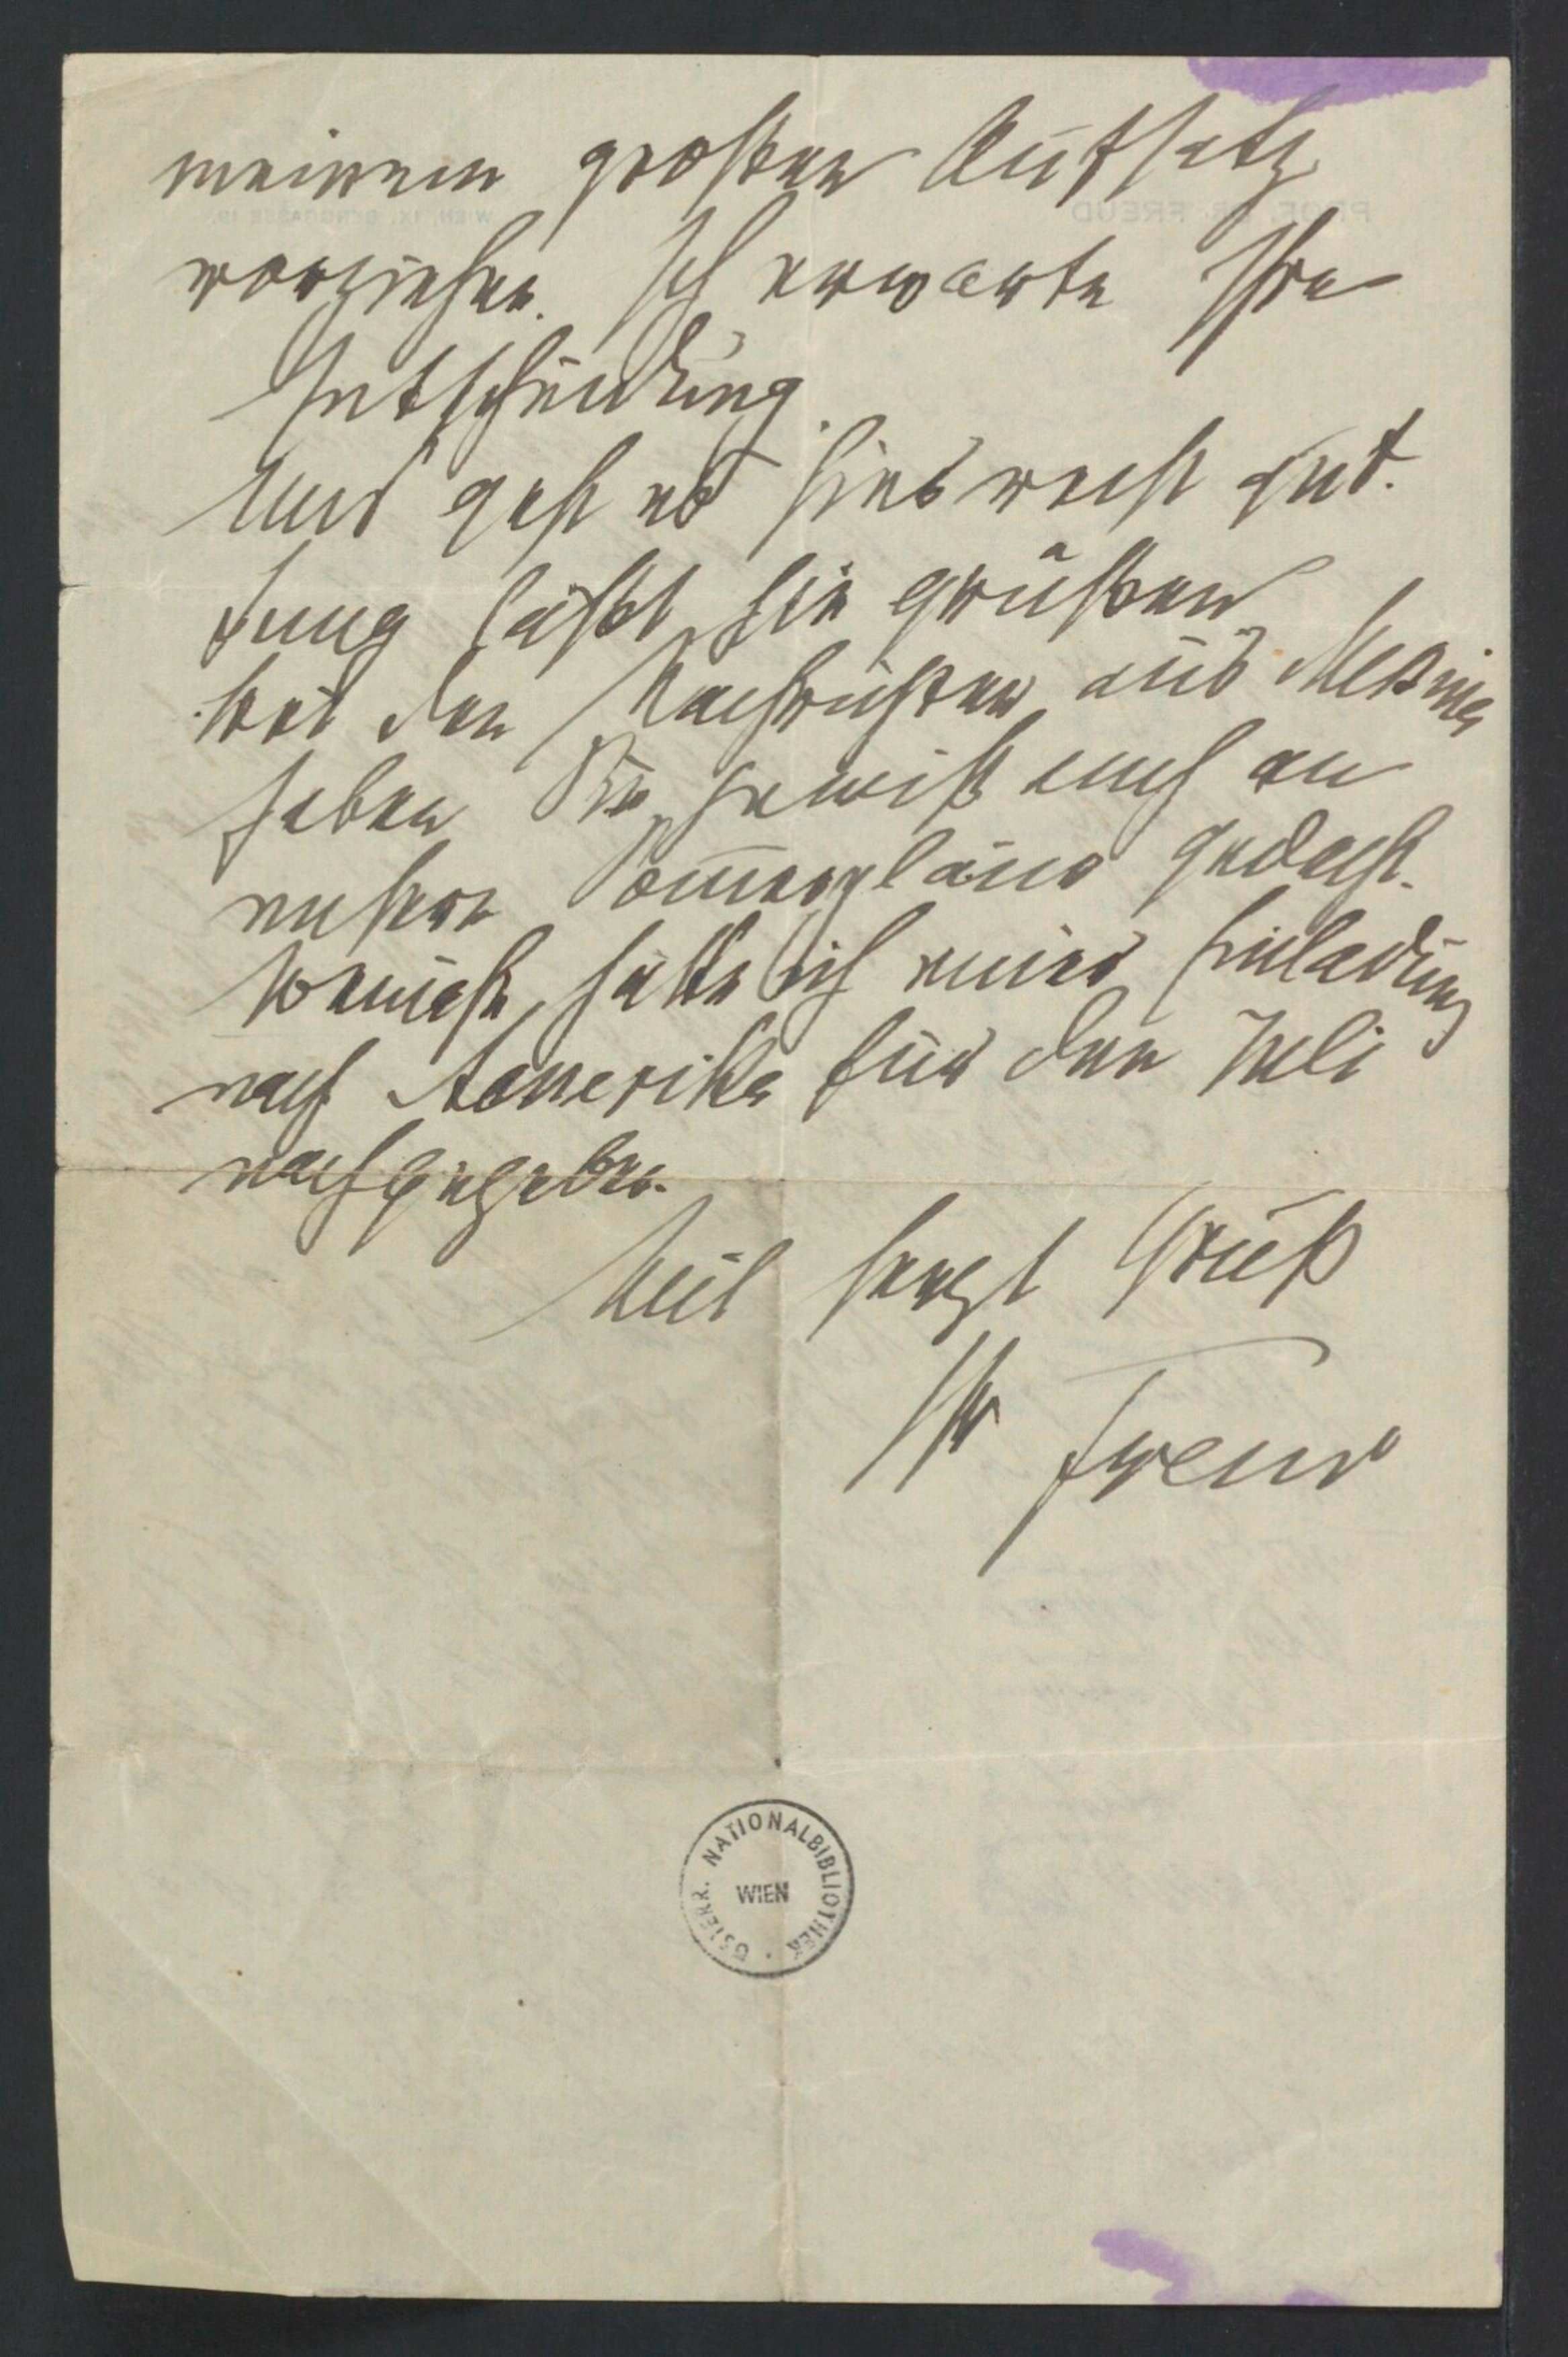 meinem großen Aufsatz
vorziehen. Ich erwarte Ihre
Entscheidung.
Uns geht es hier recht gut.
Jung läßt Sie grüßen.
Bei den Nachrichten aus Messina
haben Sie gewiß auch an
unsere Sommerpläne gedacht.
Beinahe hätte ich einer Einladung
nach Amerika für den Juli
nachgegeben.
Mit herzl Gruß
Ihr Freud
PROF. DR. FREUD
WIEN, IX. BERGGASSE 19.
ÖSTERR. NATIONALBIBLIOTHEK
WIEN